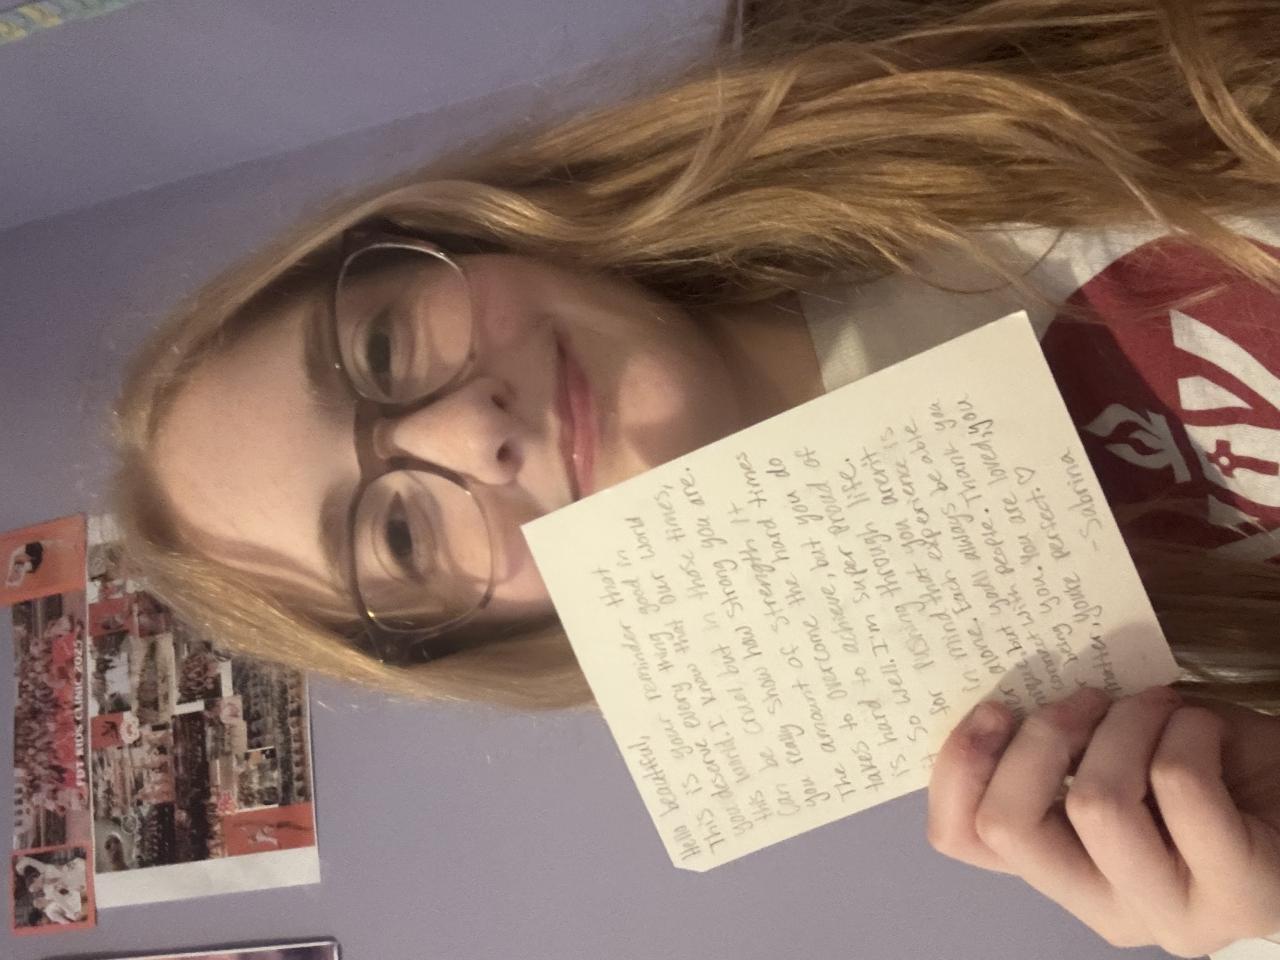 Hello beautiful,
This is your reminder that
you deserve every thing good in
this world. I know that our world
can be cruel but in those times,
you really show how strong you are.
The amount of strength it
takes to overcome the hard times
is hard to achieve, but you do
so well. I'm super proud of
for pushing through life.
in mind that you aren't
alone. Each experience is
but you'll always be able
connect with people. Thank you
being you. You are loved, you
matter, you're perfect. ♡
- Sabrina
KIDS CLINIC